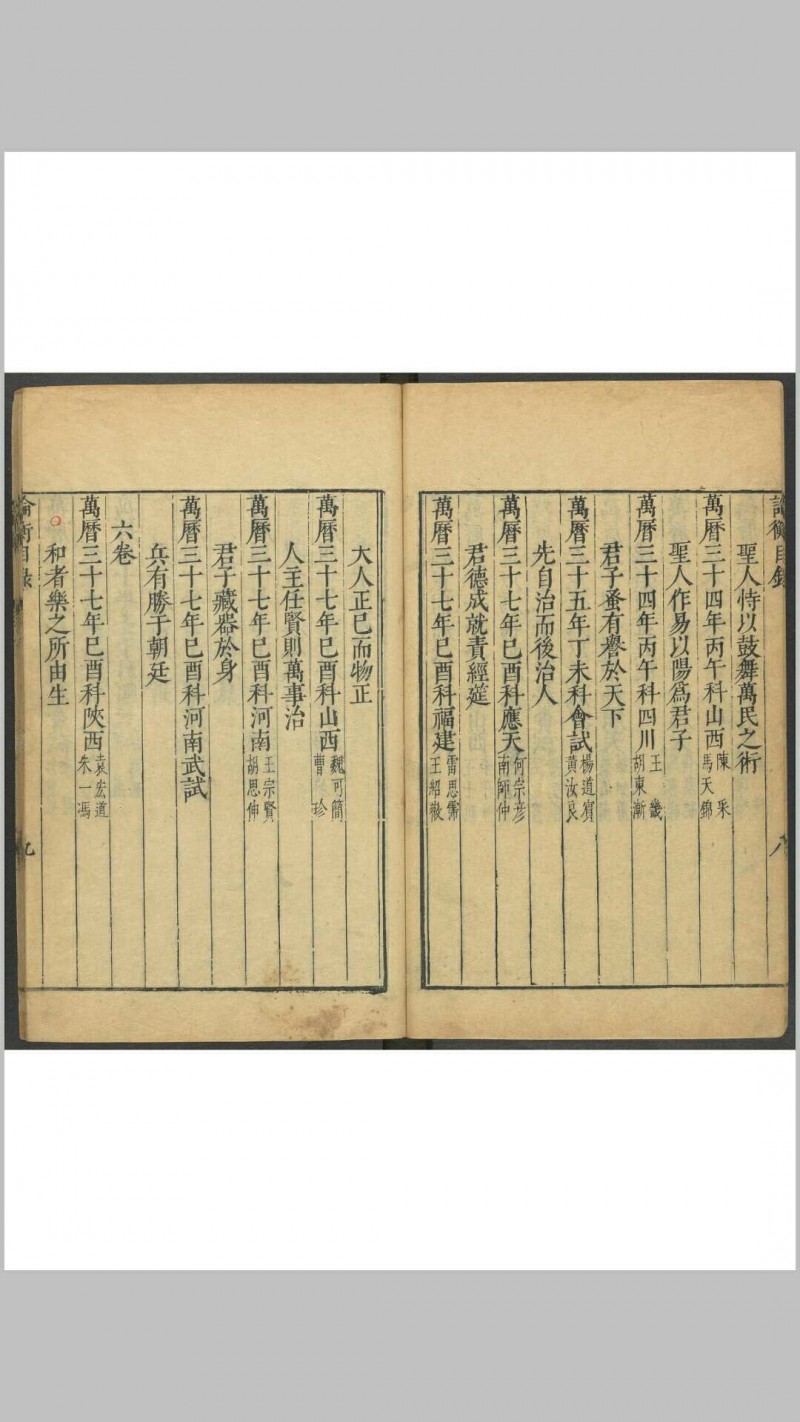 論衡目錄
聖人恃以鼓舞萬民之術
萬曆三十四年丙午科山西 陳采 馬天錦
聖人作易以陽爲君子
萬曆三十四年丙午科四川 王畿 胡東漸
君子蚤有譽於天下
萬曆三十五年丁未科會試 楊道賓 黃汝良
先自治而後治人
萬曆三十七年巳酉科應天 何宗彥 南師仲
君德成就責經筵
萬曆三十七年巳酉科福建 雷思霈 王紹徽
八
大人正巳而物正
萬曆三十七年巳酉科山西 魏可簡 曹珍
人主任賢則萬事治
萬曆三十七年巳酉科河南 王宗賢 胡思伸
君子藏器於身
萬曆三十七年巳酉科河南武試
兵有勝于朝廷
六卷
萬曆三十七年巳酉科陝西 袁宏道 朱一馮
和者樂之所由生
論衡目錄
九